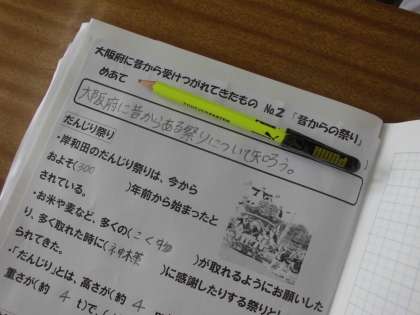 大阪府に昔から受けつがれてきたもの №2「昔からの祭り」
めあて
大阪府に昔からある祭りについて知ろう。
だんじり祭り
・岸和田のだんじり祭りは、今から
およそ(300 )年前から始まったと
されている。
・お米や麦など、多くの(こく物 )が取れるようにお願いした
り、多く取れた時に( )に感謝したりする祭りと
られてきた。
・「だんじり」とは、高さが(約 4
重さが(約 4 t)で、(約 4
PUMA